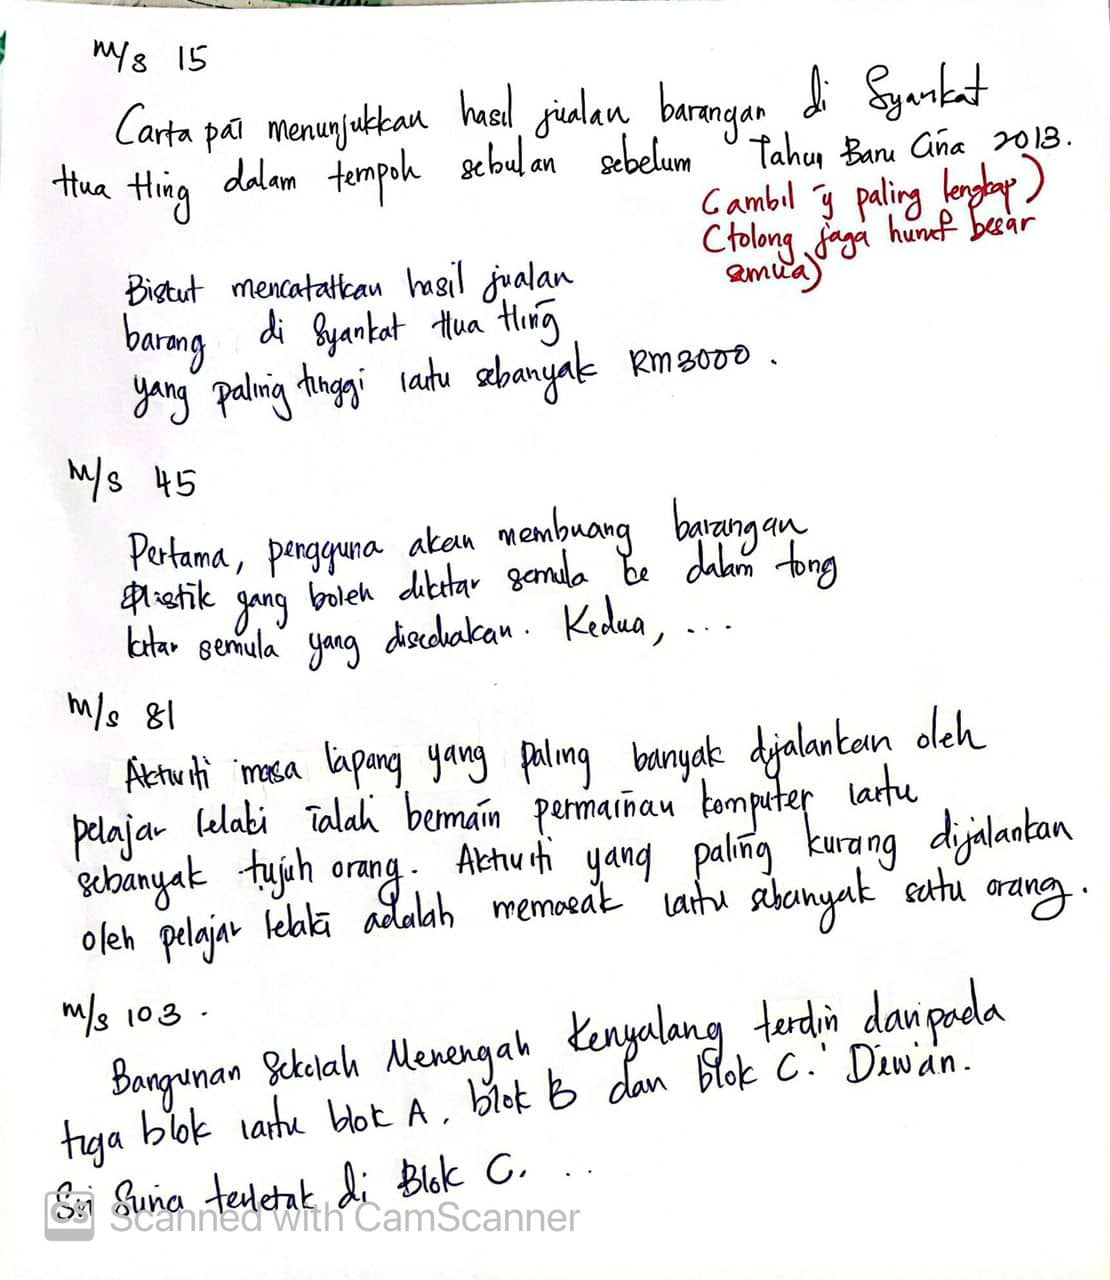 m/s 15
Carta pai menunjukkan hasil jualan barangan di Syarikat
Hua Hing dalam tempoh sebulan sebelum Tahun Baru Cina 2013.
(ambil yg paling lengkap)
(tolong jaga huruf besar
semua)
Biskut mencatatkan hasil jualan
barang di Syarikat Hua Hing
yang paling tinggi iaitu sebanyak RM3000.
m/s 45
Pertama, pengguna akan membuang barangan
plastik yang boleh dikitar semula ke dalam tong
kitar semula yang disediakan. Kedua, ...
m/s 81
Aktiviti masa lapang yang paling banyak dijalankan oleh
pelajar lelaki ialah bermain permainan komputer iaitu
sebanyak tujuh orang. Aktiviti yang paling kurang dijalankan
oleh pelajar lelaki adalah memasak iaitu sebanyak satu orang.
m/s 103.
Bangunan Sekolah Menengah Kenyalang terdiri daripada
tiga blok iaitu blok A, blok B dan blok C. Dewan
Sri Suria terletak di Blok C. ...
CS Scanned with CamScanner